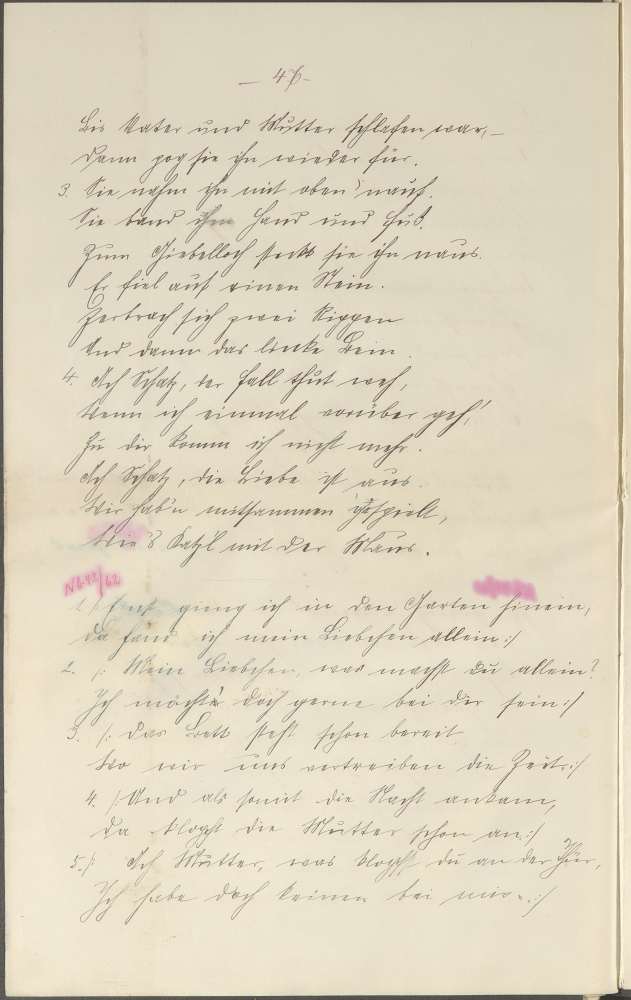 — 46 —
Bis Vater und Mutter schlafen war,—
Dann zog sie ihn wieder für.
3. Sie nahm ihn mit oben 'nauf.
Sie band ihm Hand und Fuß.
Zum Giebelloch steckt sie ihn naus.
Er fiel auf einen Stein.
Zerbrach sich zwei Rippen
Und dann das linke Bein.
4. Ach Schatz, der Fall thut weh,
Wenn ich einmal vorüber geh'
Zu dir komm ich nicht mehr.
Ach Schatz, die Liebe ist aus.
Wir hab'n mitsammen gespielt,
Wie's Katz'l mit der Maus.
1. /: ging ich in den Garten hinein,
Da fand ich mein Liebchen allein :/
2. /: Mein Liebchen, was machst du allein?
Ich möchte doch gerne bei dir sein :/
3. /: Das Bett steht schon bereit
Wo wir uns vertreiben die Zeit :/
4. /: Und als somit die Nacht ankam,
Da klopft die Mutter schon an :/
5. /: Ach Mutter, was klopfst du an der Thür,
Ich habe doch keinen bei mir. :/